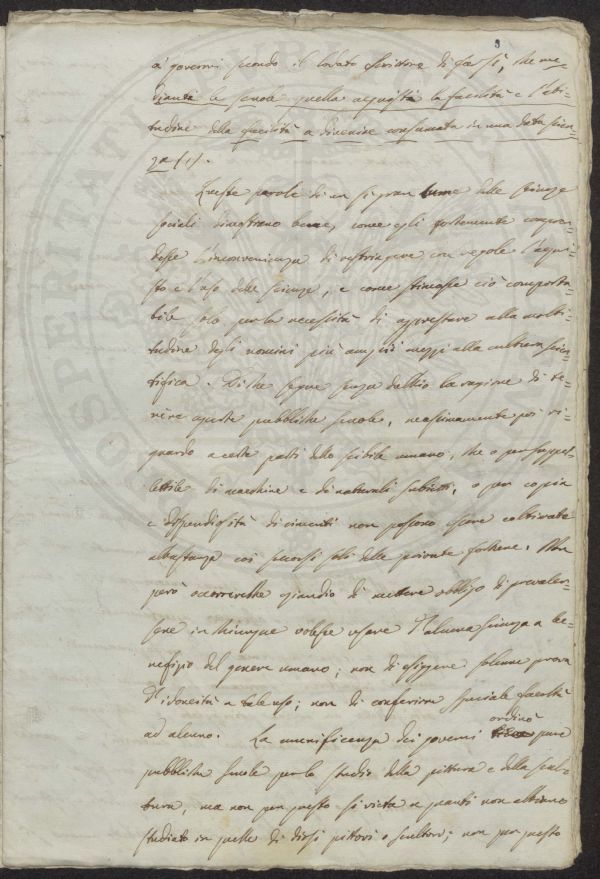 3
a' governi secondo il lodato scrittore di far sì, che me=
dianti le scuole quella acquisti la facilità e l'abi=
tudine della facilità a divenire consumata in una data scien=
za (1).
Queste parole di un sì gran lume delle scienze
sociali dimostrano bene, come egli fortemente compren=
desse l'inconvenienza di restringere con regole l'acqui=
sto e l'uso delle scienze, e come stimasse ciò comporta=
bile solo per la necessità di apprestare alla molti=
tudine degli uomini più ampj mezzi alla cultura scien=
tifica. Di che segue senza dubbio la ragione di te=
nere aperte pubbliche scuole, massimamente poi ri=
guardo a certe parti dello scibile umano, che o per suppel=
lettile di macchine e di naturali subietti, o per copia
e dispendiosità di cimenti non possono essere coltivate
abbastanza coi soccorsi soli delle private fortune. Non
però occorrerebbe quindi di mettere obbligo di prevaler=
sene in chiunque volesse usare d'alcuna scienza a be=
nefizio del genere umano; non di esiggere solenne prova
d'idoneità a tale uso; non di conferirne speciale facoltà
ad alcuno. La munificenza dei governi ordinò pure
pubbliche scuole per lo studio della pittura e della scul=
tura, ma non per questo si vieta a quanti non abbiano
studiato in quelle di dirsi pittori o scultori; non per questo